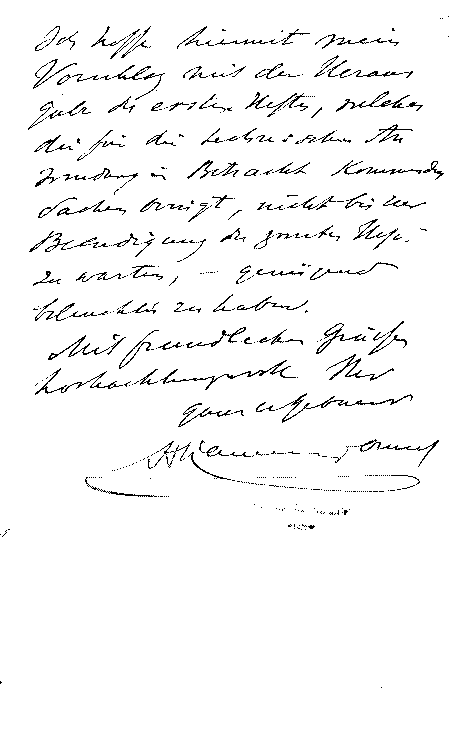 Ich hoffe hiermit mein
Vorschlag mit der Heraus
gabe des ersten Heftes, welches
die für die technischen An
wendung in Betracht kommenden
Sachen bringt, nicht bis zur
Beendigung des zweiten Hefts
zu warten, – genügend
beleuchtet zu haben.
Mit freundlichen Grüssen
hochachtungsvoll Ihr
ganz ergebener